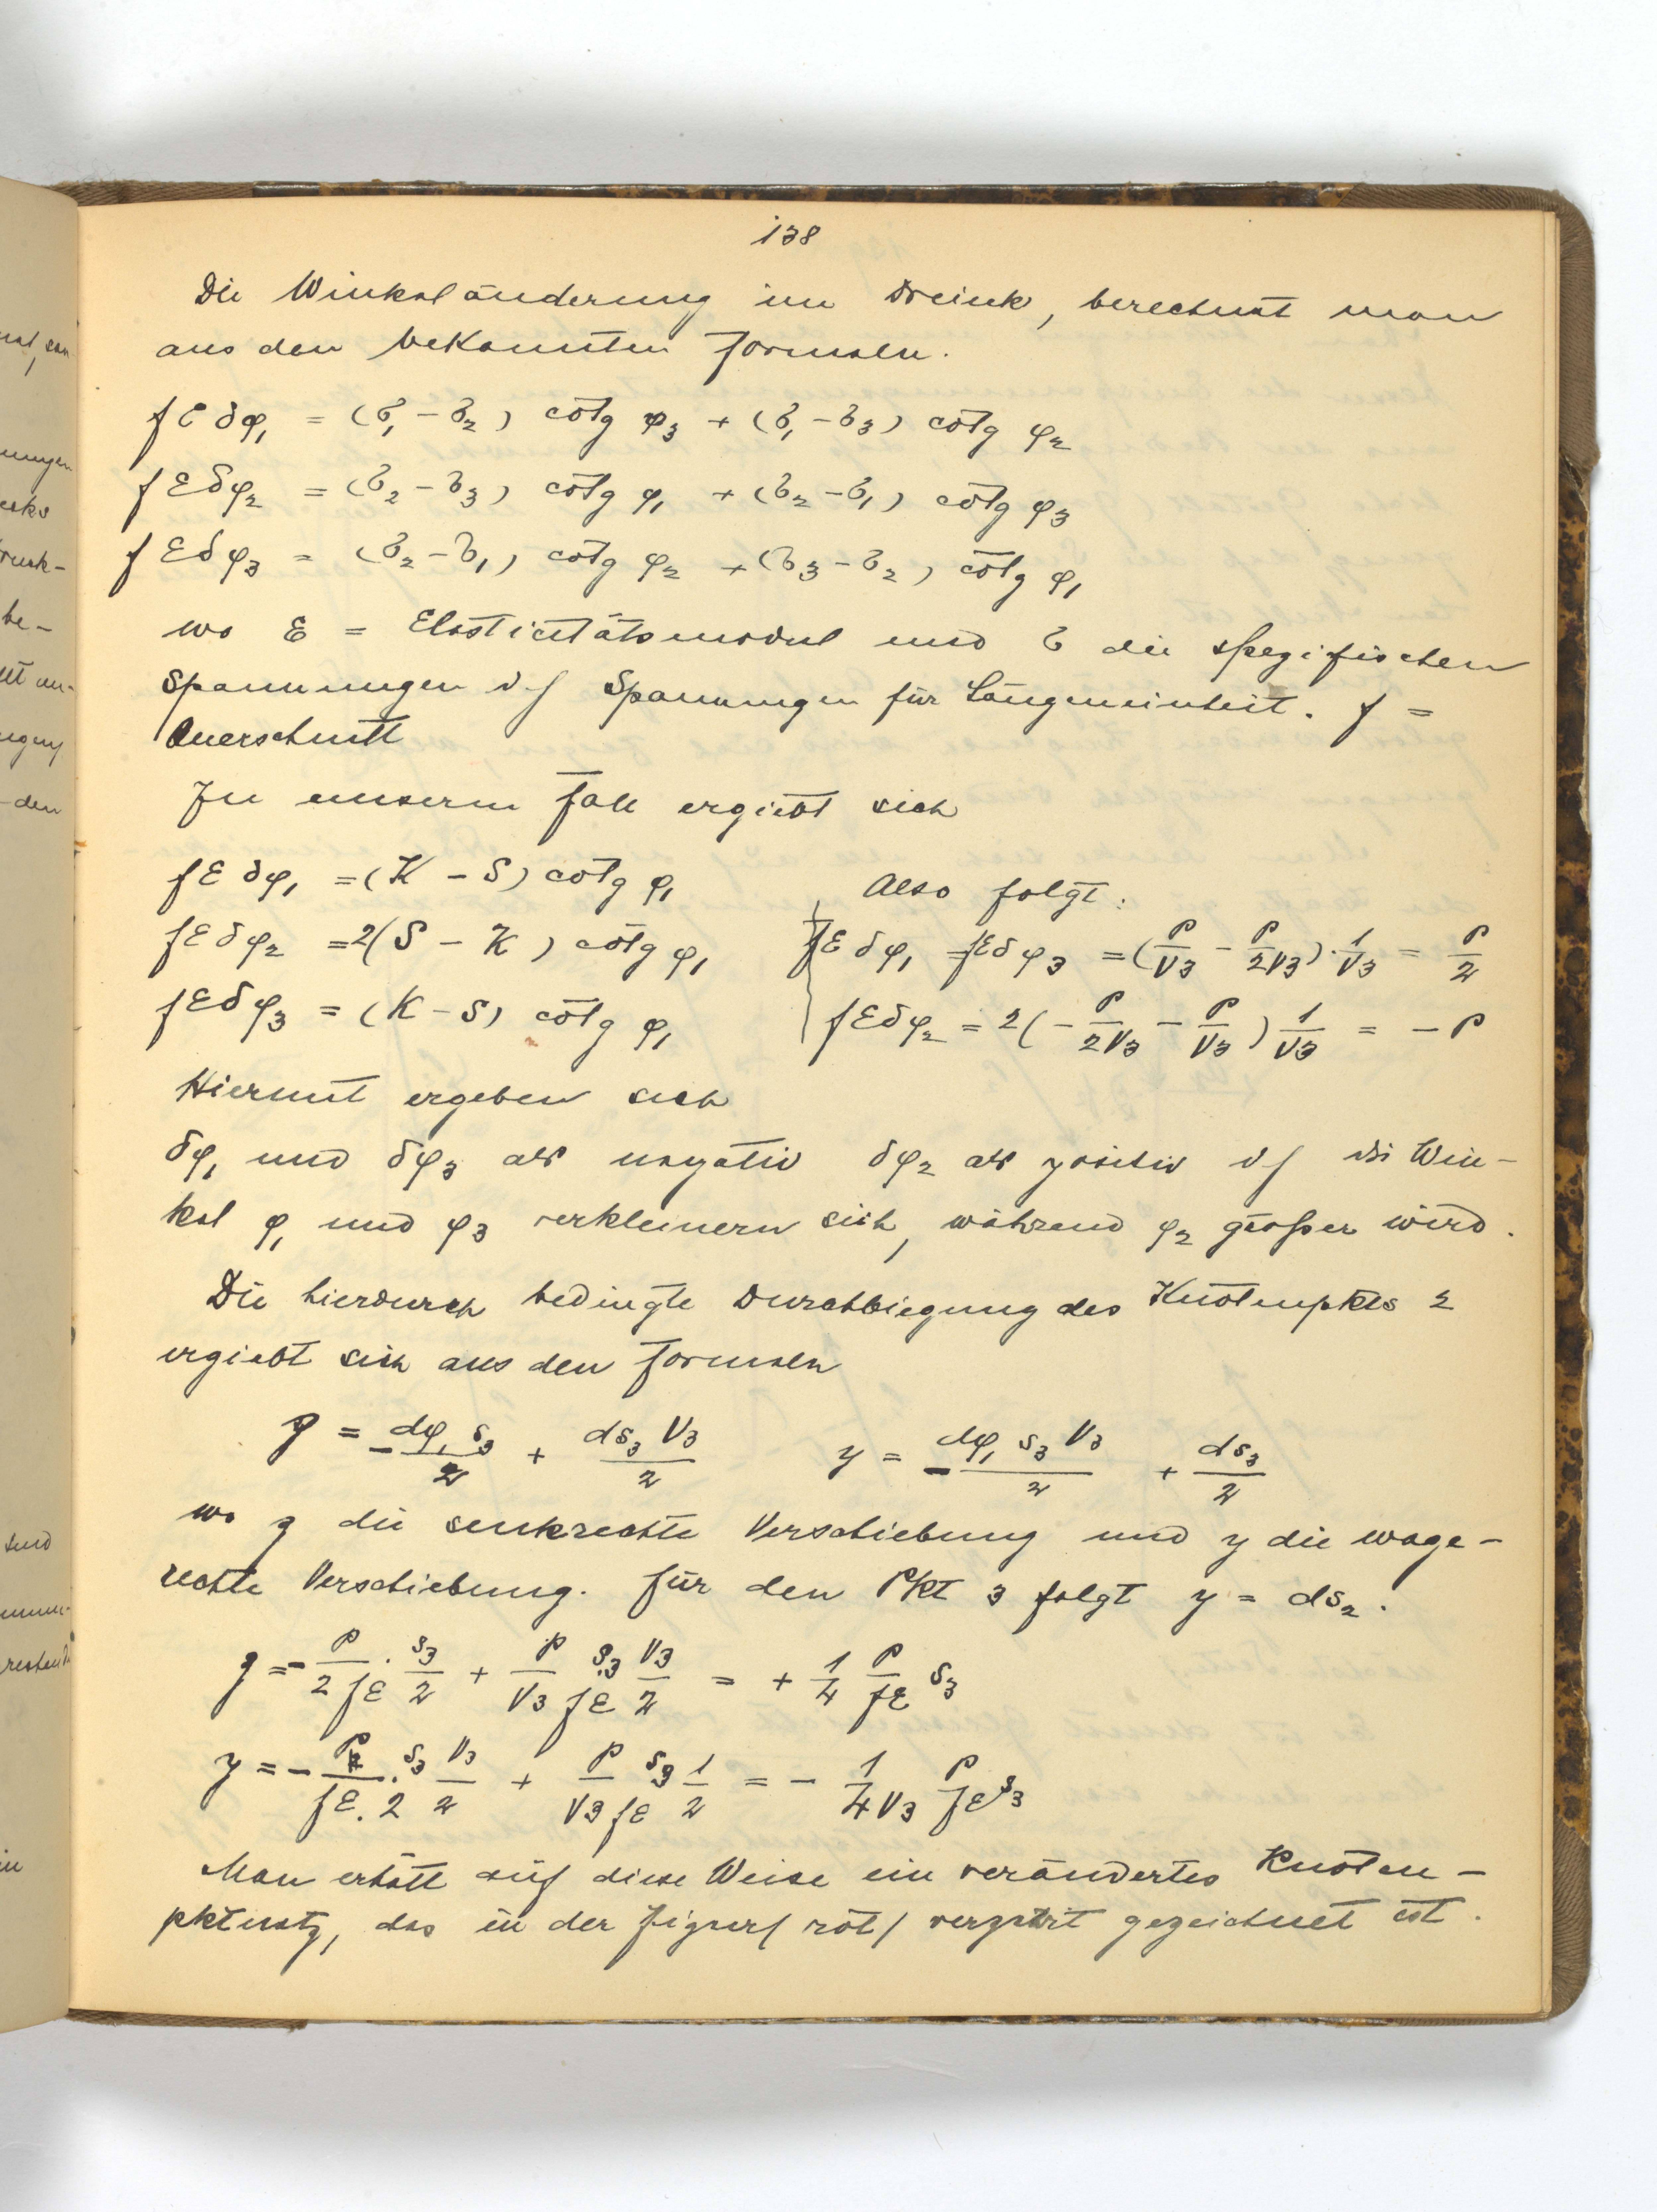 138
Die Winkeländerung im Dreieck, berechnet man
aus den bekannten Formeln.
fEδφ₁ = (σ₁ - σ₂) cotg φ₃ + (σ₁ - σ₃) cotg φ₂
fEδφ₂ = (σ₂ - σ₃) cotg φ₁ + (σ₂ - σ₁) cotg φ₃
fEδφ₃ = (σ₂ - σ₁) cotg φ₂ + (σ₃ - σ₂) cotg φ₁
wo E = Elasticitätsmodul und σ die spezifischen
Spannungen d/ Spannungen für Längeneinheit. f =
Querschnitt
In unserm Fall ergiebt sich
fEδφ₁ = (K - S) cotg φ₁
Also folgt:
fEδφ₂ = 2(S - K) cotg φ₁
fEδφ₁ = fEδφ₃ = (P/√3 - P/2√3) · 1/√3 = P/2
fEδφ₃ = (K - S) cotg φ₁
fEδφ₂ = 2(- P/2√3 - P/√3) 1/√3 = - P
Hiermit ergeben sich
δφ₁ und δφ₃ als negativ δφ₂ als positiv d/ die Win-
kel φ₁ und φ₃ verkleinern sich, während φ₂ größer wird.
Die hierdurch bedingte Durchbiegung des Knotenpkts 2
ergiebt sich aus den Formeln
z = - dφ₁ s₃/2 + ds₃ √3/2 y = - dφ₁ s₃ √3/2 + ds₃/2
wo z die senkrechte Verschiebung und y die wage-
rechte Verschiebung. Für den Pkt 3 folgt y = ds₂.
z = - P/2fE · s₃/2 + P/√3 fE s₃ √3/2 = + 1/4 P/fE s₃
y = - P/fE.2 · s₃ √3/2 + P/√3 fE s₃ 1/2 = - 1/4√3 P/fE s₃
Man erhält auf diese Weise ein verändertes Knoten-
pktnetz, das in der Figur/ rot/ verzerrt gezeichnet ist.